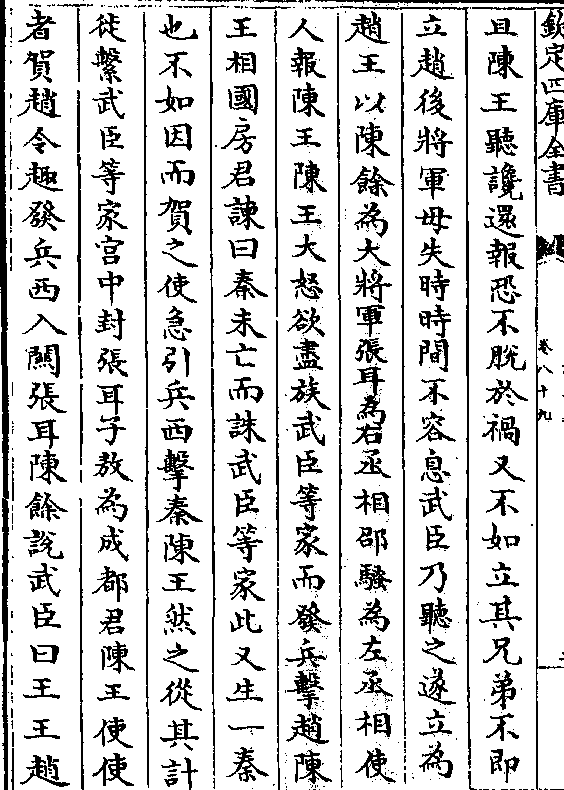 欽定四庫全書
卷八十九
且陳王聽讒還報恐不脫於禍又不如立其兄弟不即
立趙後將軍毋失時時間不容息武臣乃聽之遂立為
趙王以陳餘為大將軍張耳為右丞相邵騷為左丞相使
人報陳王陳王大怒欲盡族武臣等家而發兵擊趙陳
王相國房君諫曰秦未亡而誅武臣等家此又生一秦
也不如因而賀之使急引兵西擊秦陳王然之從其計
徙繫武臣等家宫中封張耳子敖為成都君陳王使使
者賀趙令趣發兵西入關張耳陳餘説武臣曰王王趙